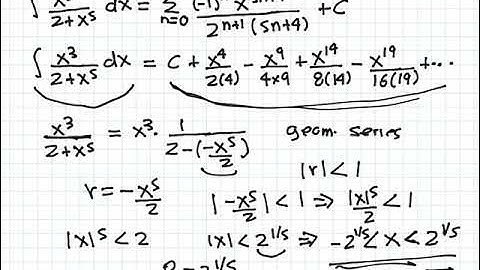 ∫ x³/(2+x⁵) dx = Σ n=0 (-1)ⁿ x⁵ⁿ⁺⁴ / 2ⁿ⁺¹(5n+4) + C
∫ x³/(2+x⁵) dx = C + x⁴/2(4) − x⁹/4×9 + x¹⁴/8(14) − x¹⁹/16(19) + ···
x³/(2+x⁵) = x³ · 1/(2−(−x⁵/2)) geom. series
|r| < 1
r = −x⁵/2 |−x⁵/2| < 1 ⇒ |x|⁵/2 < 1
|x|⁵ < 2 |x| < 2^(1/5) ⇒ −2^(1/5) < x < 2^(1/5)